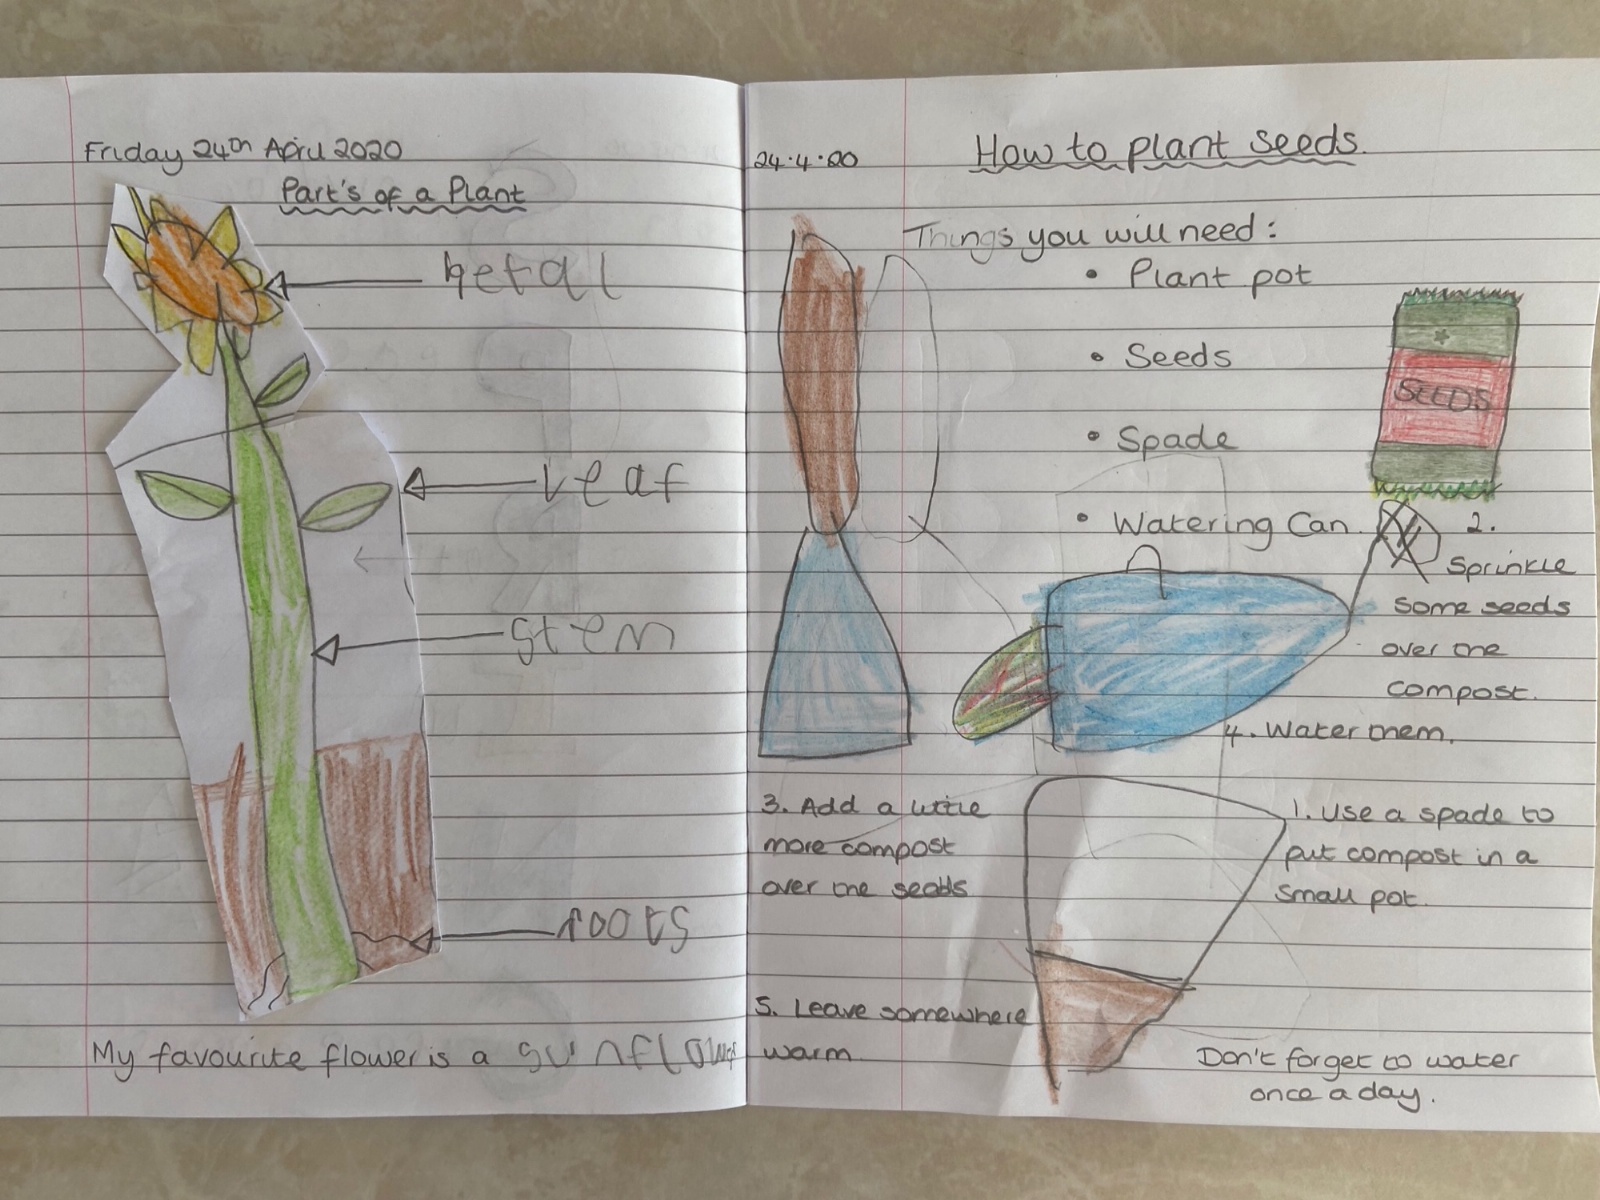 Friday 24th April 2020
Part's of a Plant
petal
leaf
stem
roots
My favourite flower is a sunflower
24.4.20
How to plant seeds.
Things you will need:
• Plant pot
• Seeds
• Spade
• Watering Can.
SEEDS
1. Use a spade to
put compost in a
small pot.
2.
Sprinkle
some seeds
over the
compost.
3. Add a little
more compost
over the seeds
4. Water them.
5. Leave somewhere
warm
Don't forget to water
once a day.